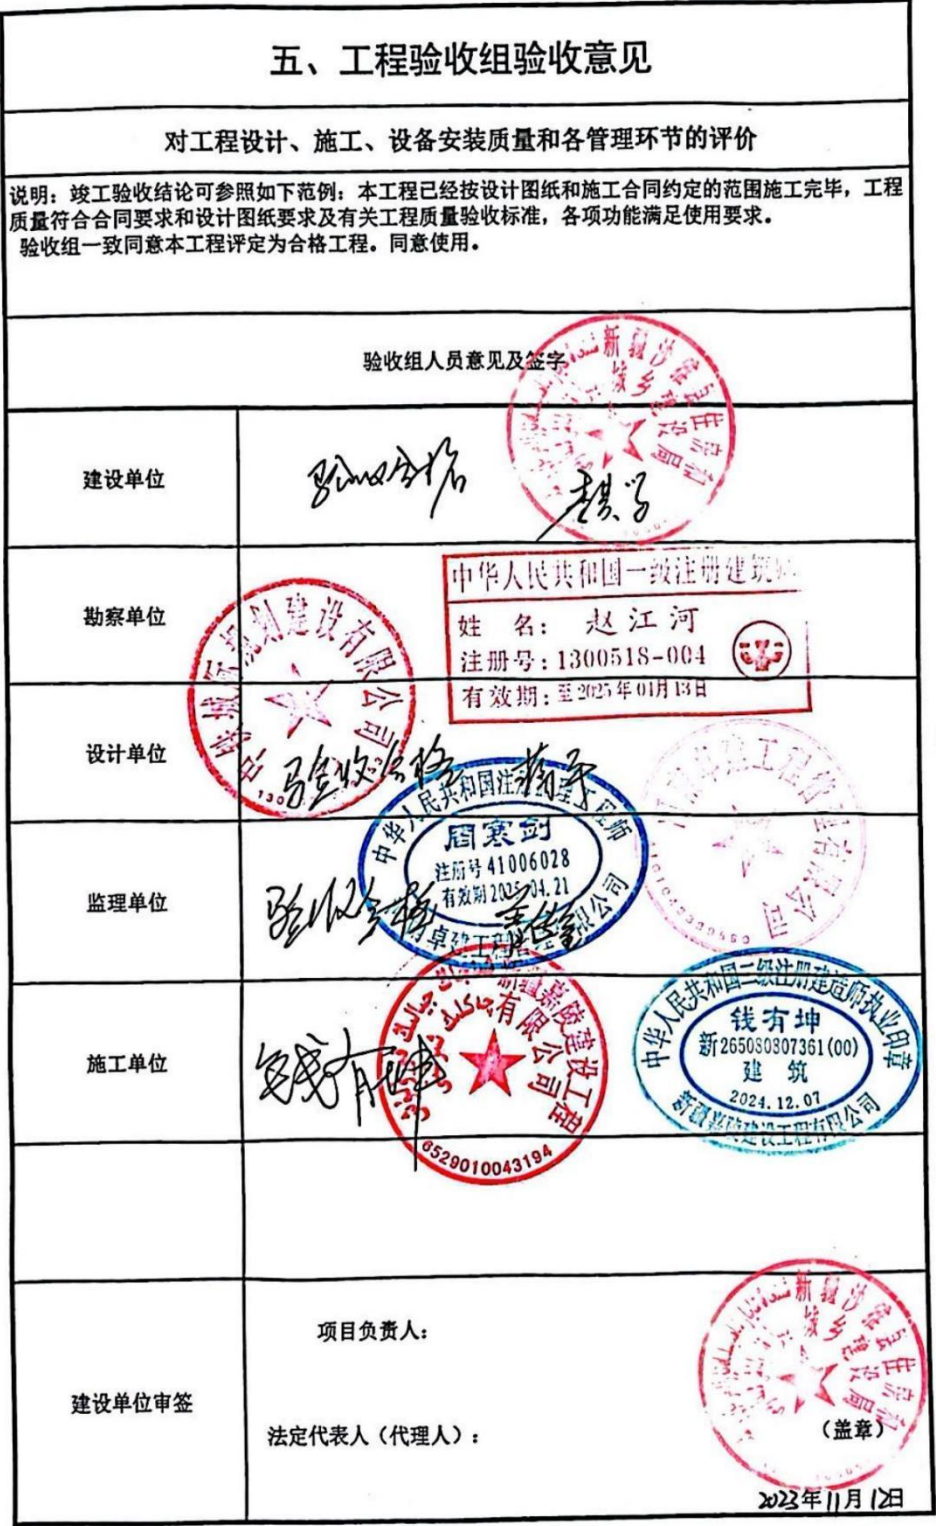 五、工程验收组验收意见
对工程设计、施工、设备安装质量和各管理环节的评价
说明：竣工验收结论可参照如下范例：本工程已经按设计图纸和施工合同约定的范围施工完毕，工程
质量符合合同要求和设计图纸要求及有关工程质量验收标准，各项功能满足使用要求。
验收组一致同意本工程评定为合格工程。同意使用。
验收组人员意见及签字
新疆沙雅县住房和
城乡建设局
建设单位
验收合格
勘察单位
中华人民共和国一级注册建筑师
姓 名：赵江河
注册号：1300518-004
有效期：至2025年01月13日
规划建设有限公司
设计单位
验收合格
中华人民共和国注册监理工程师
周寒剑
注册号 41006028
有效期 2025.04.21
卓建工程管理有限公司
工程管理有限公司
监理单位
验收合格
施工单位
钱有坤
新疆嘉陵建设工程
有限公司
6529010043194
中华人民共和国二级注册建造师执业印章
钱有坤
新265080807361(00)
建 筑
2024.12.07
新疆嘉陵建设工程有限公司
建设单位审签
项目负责人：
法定代表人（代理人）：
新疆沙雅县住房和
城乡建设局
（盖章）
2023年11月12日